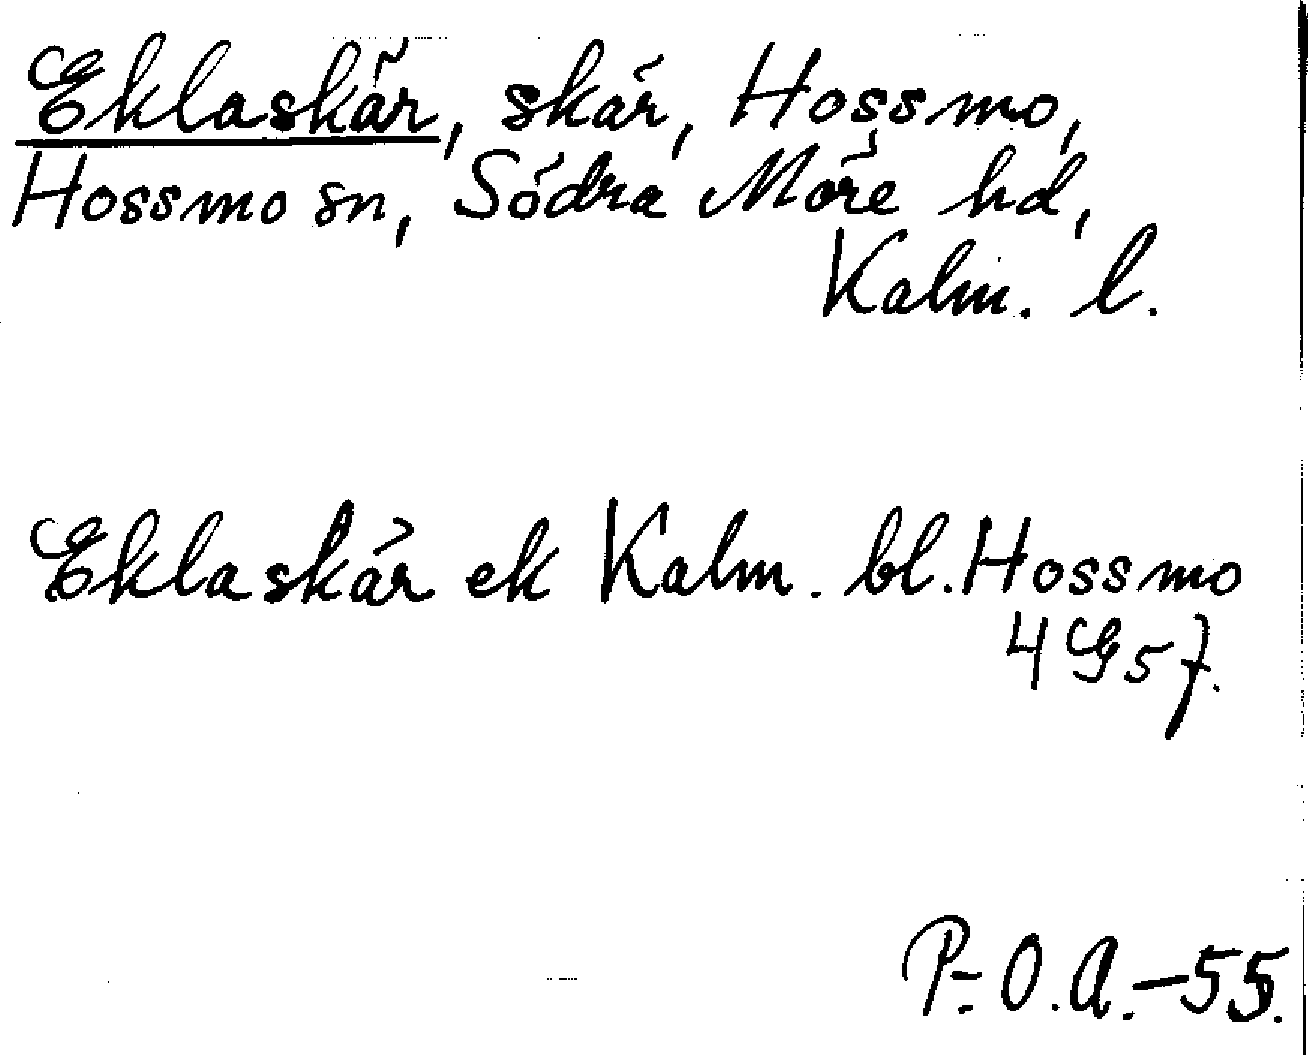 Eklaskär, skär, Hossmo,
Hossmo sn, Södra Möre hd,
Kalm. l.
Eklaskär ek Kalm. bl. Hossmo
4 G 57.
P.-O.A.-55.